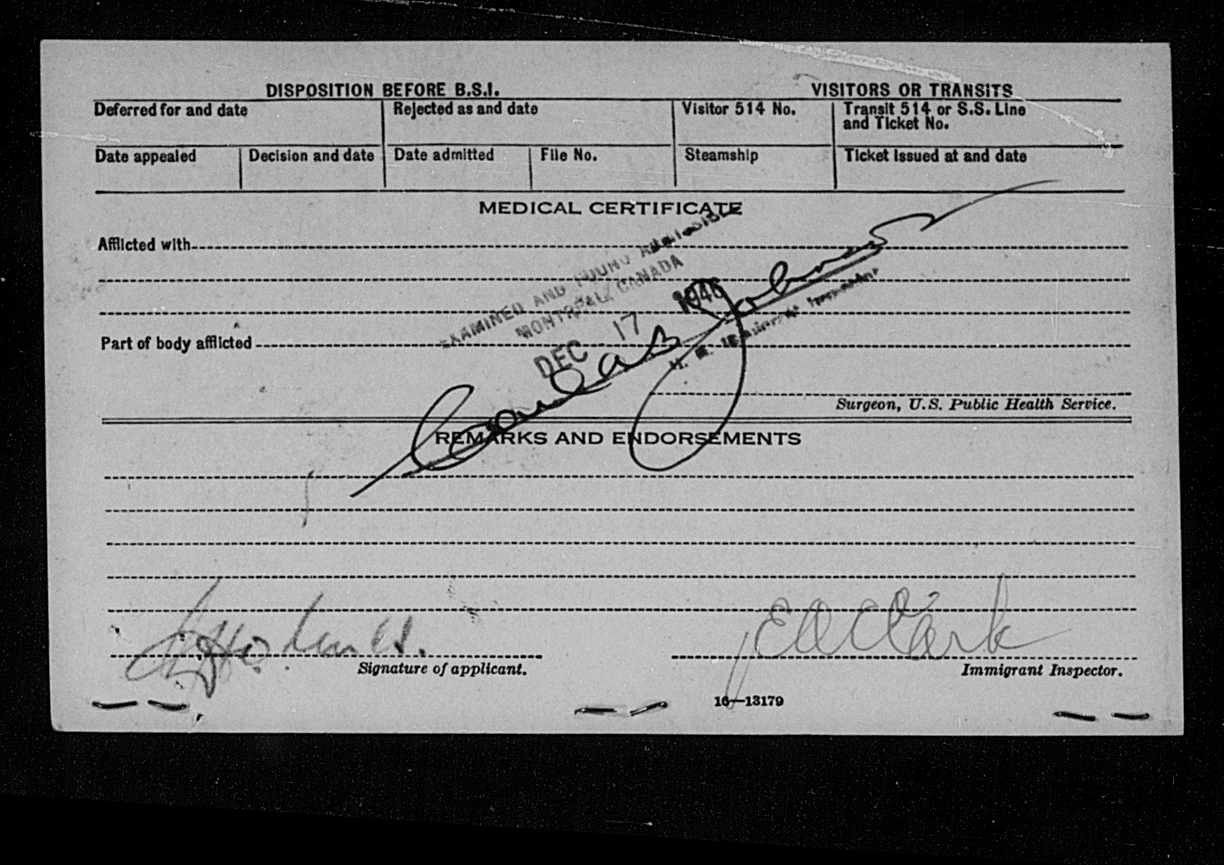 DISPOSITION BEFORE B.S.I. VISITORS OR TRANSITS
Deferred for and date Rejected as and date Visitor 514 No. Transit 514 or S.S. Line and Ticket No.
Date appealed Decision and date Date admitted File No. Steamship Ticket issued at and date
MEDICAL CERTIFICATE
Afflicted with
EXAMINED AND FOUND ADMISSIBLE
MONTREAL, CANADA
DEC 17 1946
Part of body afflicted
Surgeon, U.S. Public Health Service.
REMARKS AND ENDORSEMENTS
E A Clark
Signature of applicant. Immigrant Inspector.
16—13179